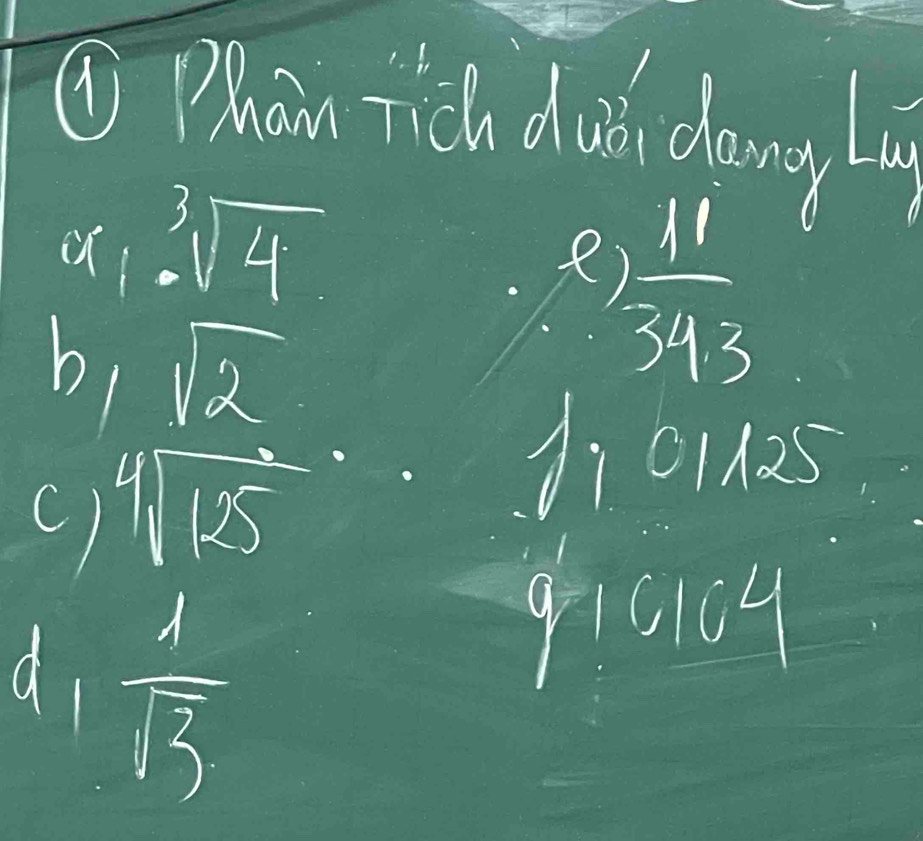 ① Phân Tích dưới dạng Lũy
a, ∛4
b, √2
c) ∜125
d, 1/√3
e) 1/343
f, 0,125
g, 0,04